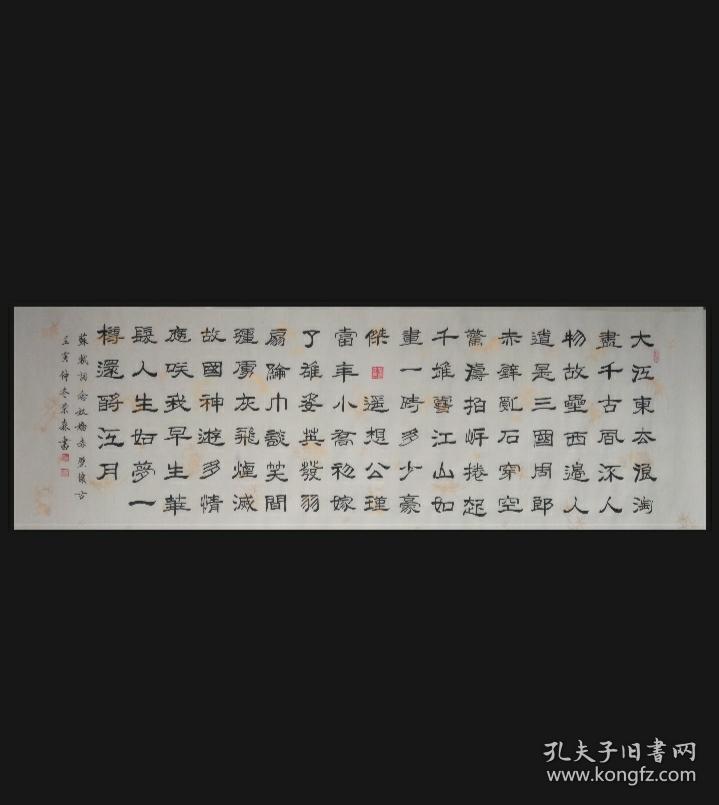 大江東去浪淘
盡千古風流人
物故壘西邊人
道是三國周郎
赤壁亂石穿空
驚濤拍岸捲起
千堆雪江山如
畫一時多少豪
傑遥想公瑾
當年小喬初嫁
了雄姿英發羽
扇綸巾談笑間
強虜灰飛煙滅
故國神遊多情
應咲我早生華
髮人生如夢一
樽還酹江月
蘇軾詞念奴嬌赤壁懷古
壬寅仲冬榮森書
孔夫子旧書网
www.kongfz.com